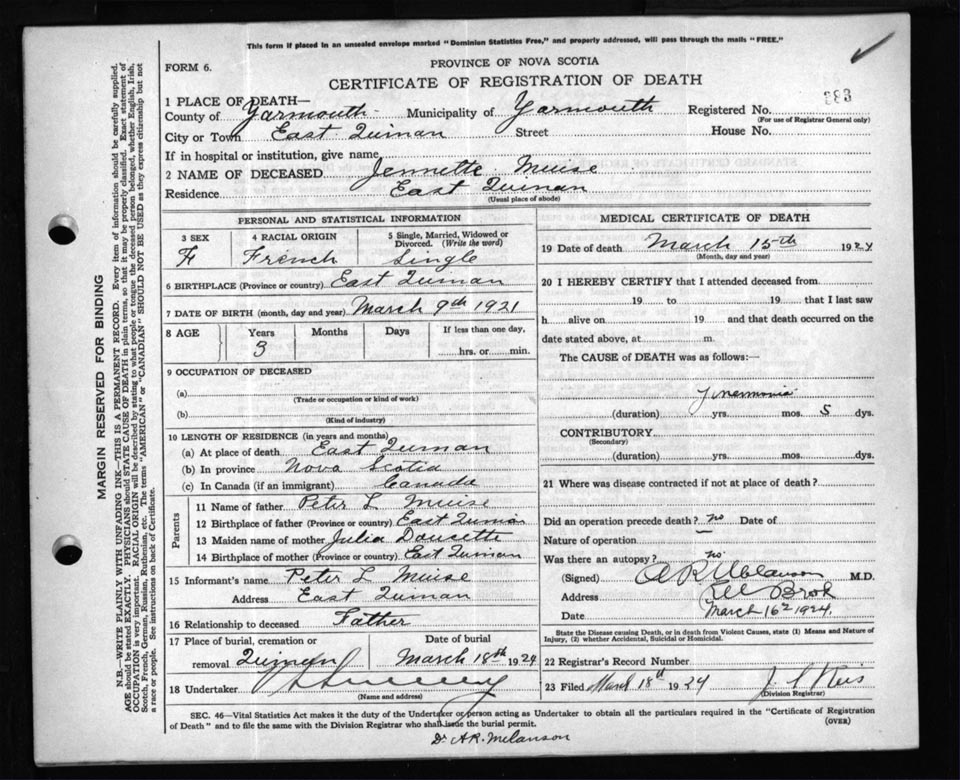 This form if placed in an unsealed envelope marked "Dominion Statistics Free," and properly addressed, will pass through the mails "FREE."
FORM 6.
PROVINCE OF NOVA SCOTIA
CERTIFICATE OF REGISTRATION OF DEATH
383
1 PLACE OF DEATH—
County of Yarmouth Municipality of Yarmouth Registered No.
(For use of Registrar General only)
City or Town East Quinan Street House No.
If in hospital or institution, give name
2 NAME OF DECEASED Jennette Muise
Residence East Quinan
(Usual place of abode)
PERSONAL AND STATISTICAL INFORMATION
3 SEX 4 RACIAL ORIGIN 5 Single, Married, Widowed or Divorced. (Write the word)
F French Single
6 BIRTHPLACE (Province or country) East Quinan
7 DATE OF BIRTH (month, day and year) March 9th 1921
8 AGE Years Months Days If less than one day,
3 hrs. or min.
9 OCCUPATION OF DECEASED
(a)
(Trade or occupation or kind of work)
(b)
(Kind of industry)
10 LENGTH OF RESIDENCE (in years and months)
(a) At place of death East Quinan
(b) In province Nova Scotia
(c) In Canada (if an immigrant) Canada
Parents
11 Name of father Peter L Muise
12 Birthplace of father (Province or country) East Quinan
13 Maiden name of mother Julia Doucette
14 Birthplace of mother (Province or country) East Quinan
15 Informant's name Peter L Muise
Address East Quinan
16 Relationship to deceased Father
17 Place of burial, cremation or Date of burial
removal Quinan March 18th 1924
18 Undertaker
(Name and address)
MEDICAL CERTIFICATE OF DEATH
19 Date of death March 15th 1924
(Month, day and year)
20 I HEREBY CERTIFY that I attended deceased from
19 to 19 that I last saw
h alive on 19 and that death occurred on the
date stated above, at m.
The CAUSE of DEATH was as follows:—
Pnemonia
(duration) yrs. mos. 5 dys.
CONTRIBUTORY
(Secondary)
(duration) yrs. mos. dys.
21 Where was disease contracted if not at place of death?
Did an operation precede death? no Date of
Nature of operation
Was there an autopsy? no
(Signed) A R Melanson M.D.
Address Eel Brook
Date March 16th 1924.
State the Disease causing Death, or in death from Violent Causes, state (1) Means and Nature of
Injury, (2) whether Accidental, Suicidal or Homicidal.
22 Registrar's Record Number
23 Filed March 18th 1924
(Division Registrar)
SEC. 46—Vital Statistics Act makes it the duty of the Undertaker or person acting as Undertaker to obtain all the particulars required in the "Certificate of Registration
of Death" and to file the same with the Division Registrar who shall issue the burial permit.
(OVER)
Dr AR. Melanson
MARGIN RESERVED FOR BINDING
N.B.—WRITE PLAINLY, WITH UNFADING INK—THIS IS A PERMANENT RECORD. Every item of information should be carefully supplied.
AGE should be stated EXACTLY. PHYSICIANS should STATE CAUSE OF DEATH in plain terms, so that it may be properly classified. Exact statement of
OCCUPATION is very important. RACIAL ORIGIN will be described by stating to what people or tongue the deceased person belonged, whether English, Irish,
Scotch, French, German, Russian, Ruthenian, etc. The terms "AMERICAN" or "CANADIAN" SHOULD NOT BE USED as they express citizenship but not
a race or people. See instructions on back of Certificate.